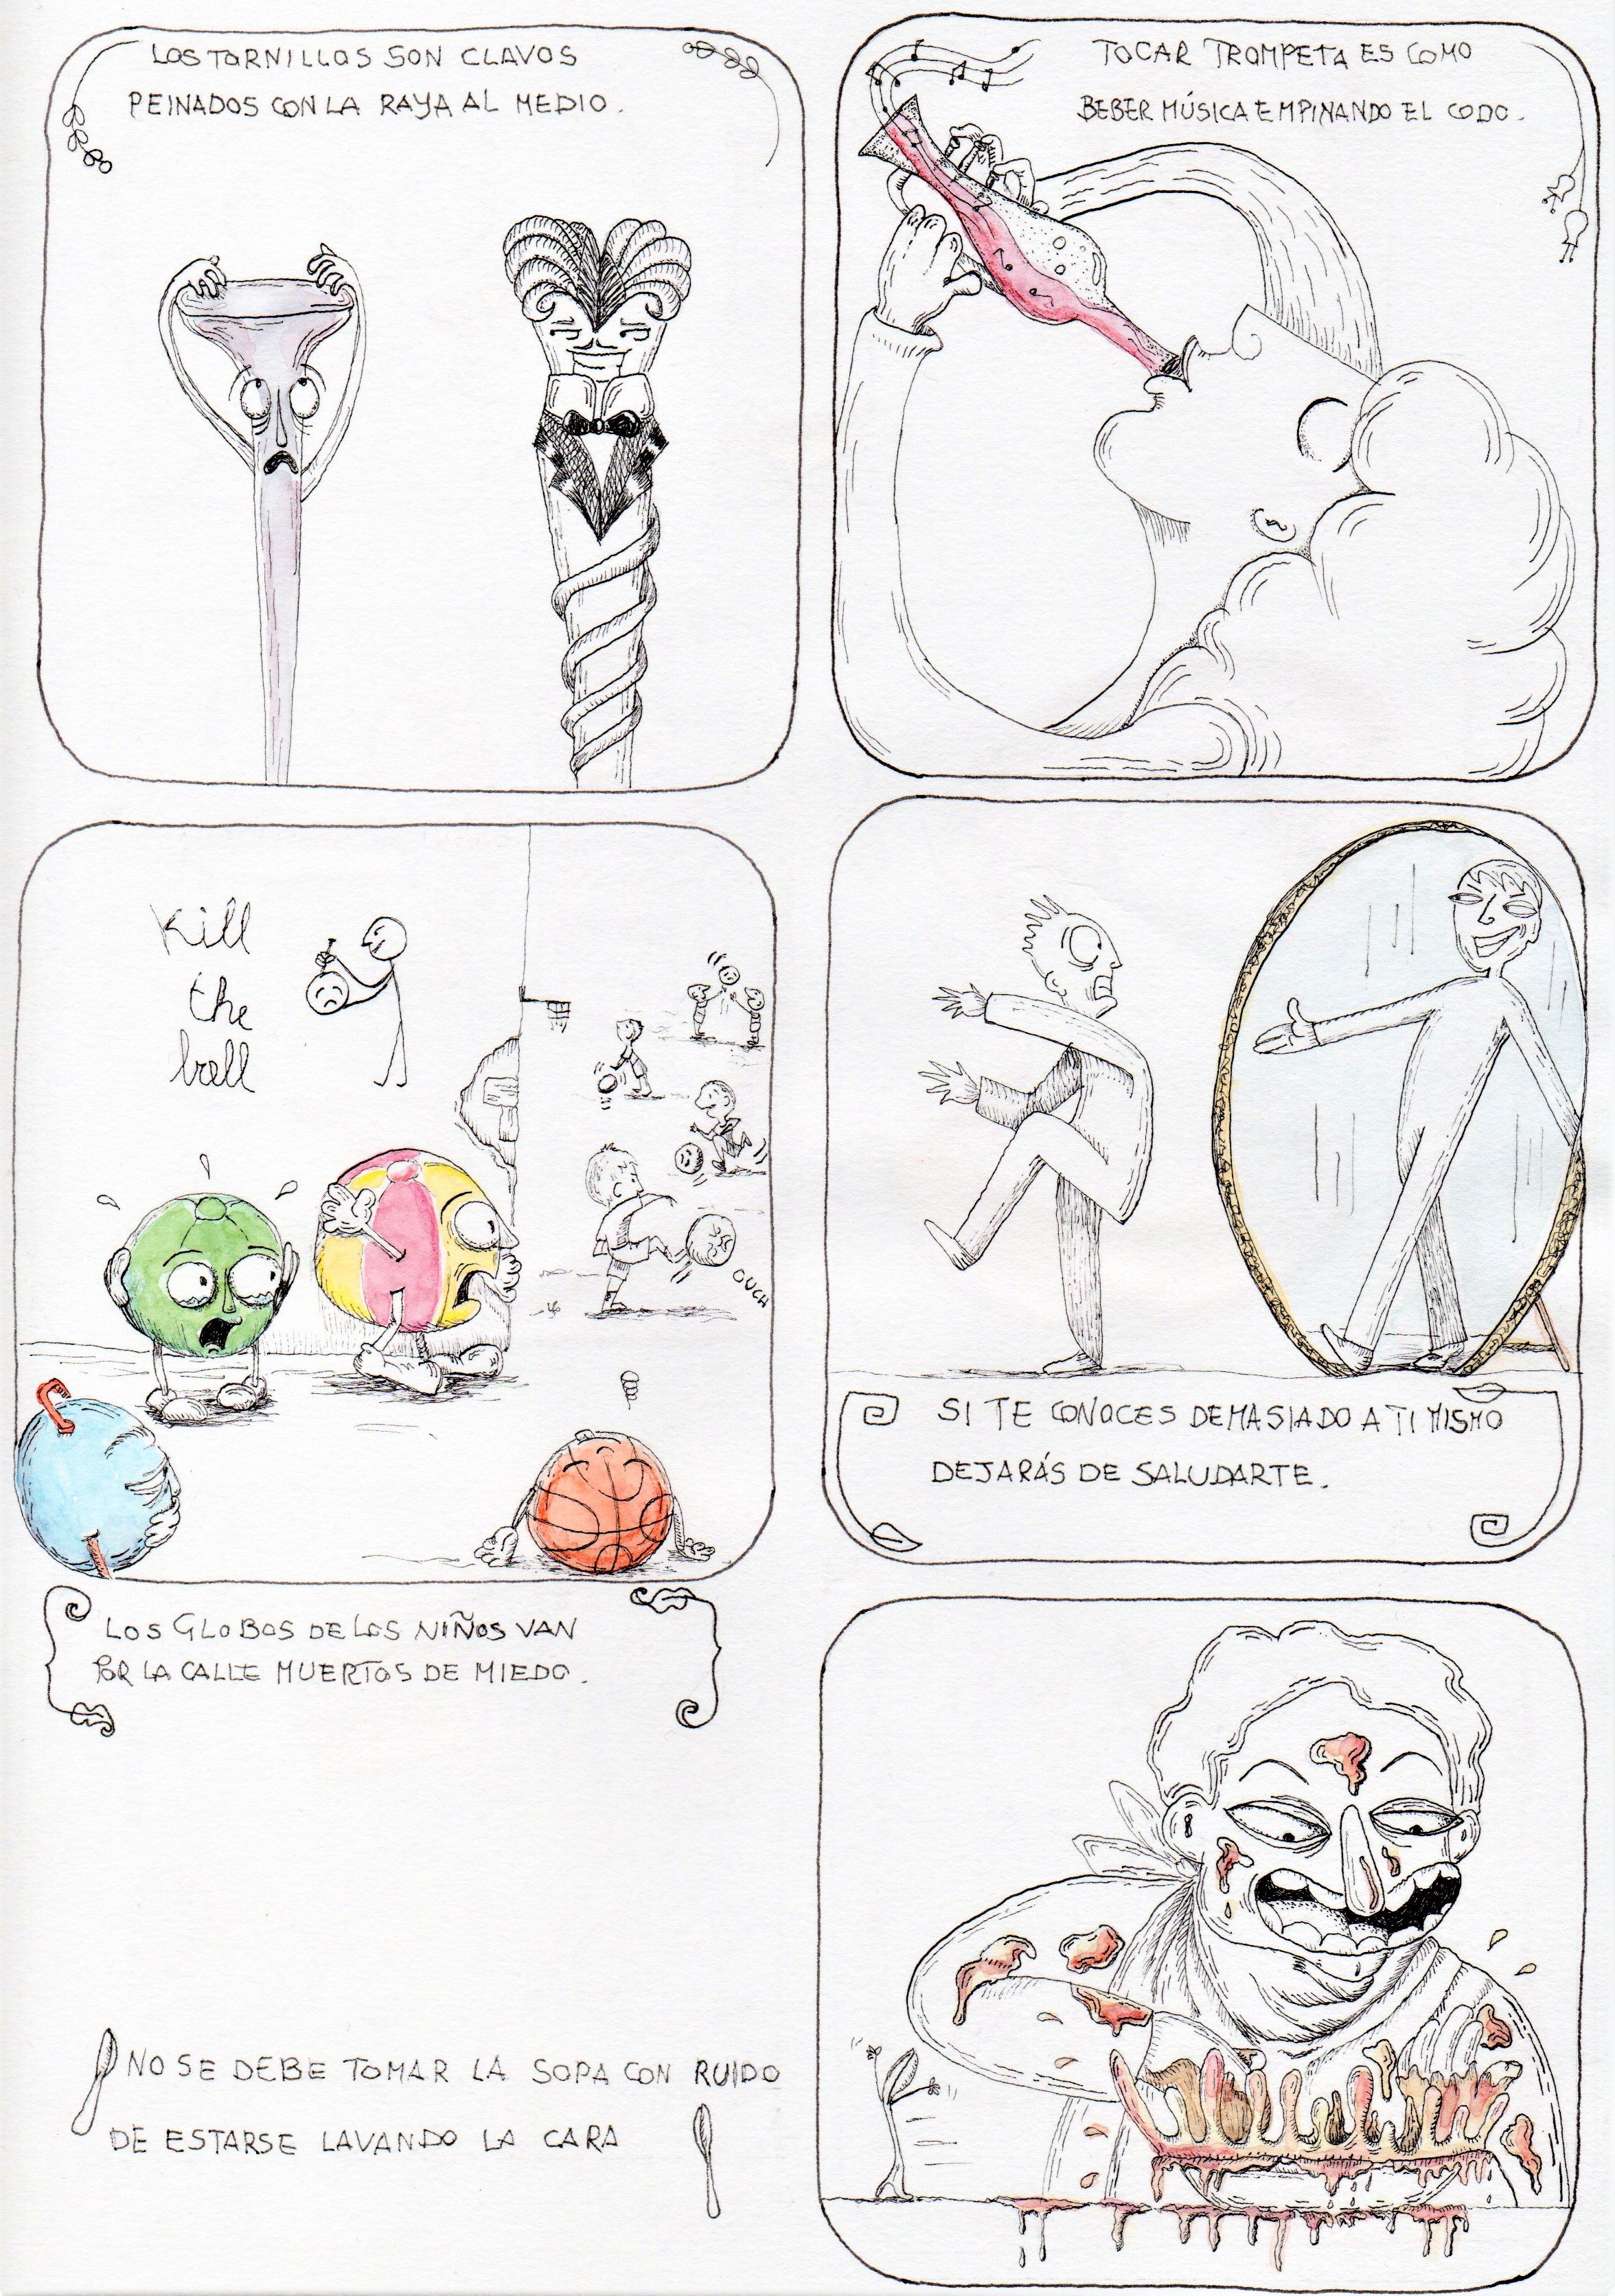 LOS TORNILLOS SON CLAVOS
PEINADOS CON LA RAYA AL MEDIO.
TOCAR TROMPETA ES COMO
BEBER MÚSICA EMPINANDO EL CODO.
Kill
the
ball
OUCH
LOS GLOBOS DE LOS NIÑOS VAN
POR LA CALLE MUERTOS DE MIEDO.
SI TE CONOCES DEMASIADO A TI MISMO
DEJARÁS DE SALUDARTE.
NO SE DEBE TOMAR LA SOPA CON RUIDO
DE ESTARSE LAVANDO LA CARA